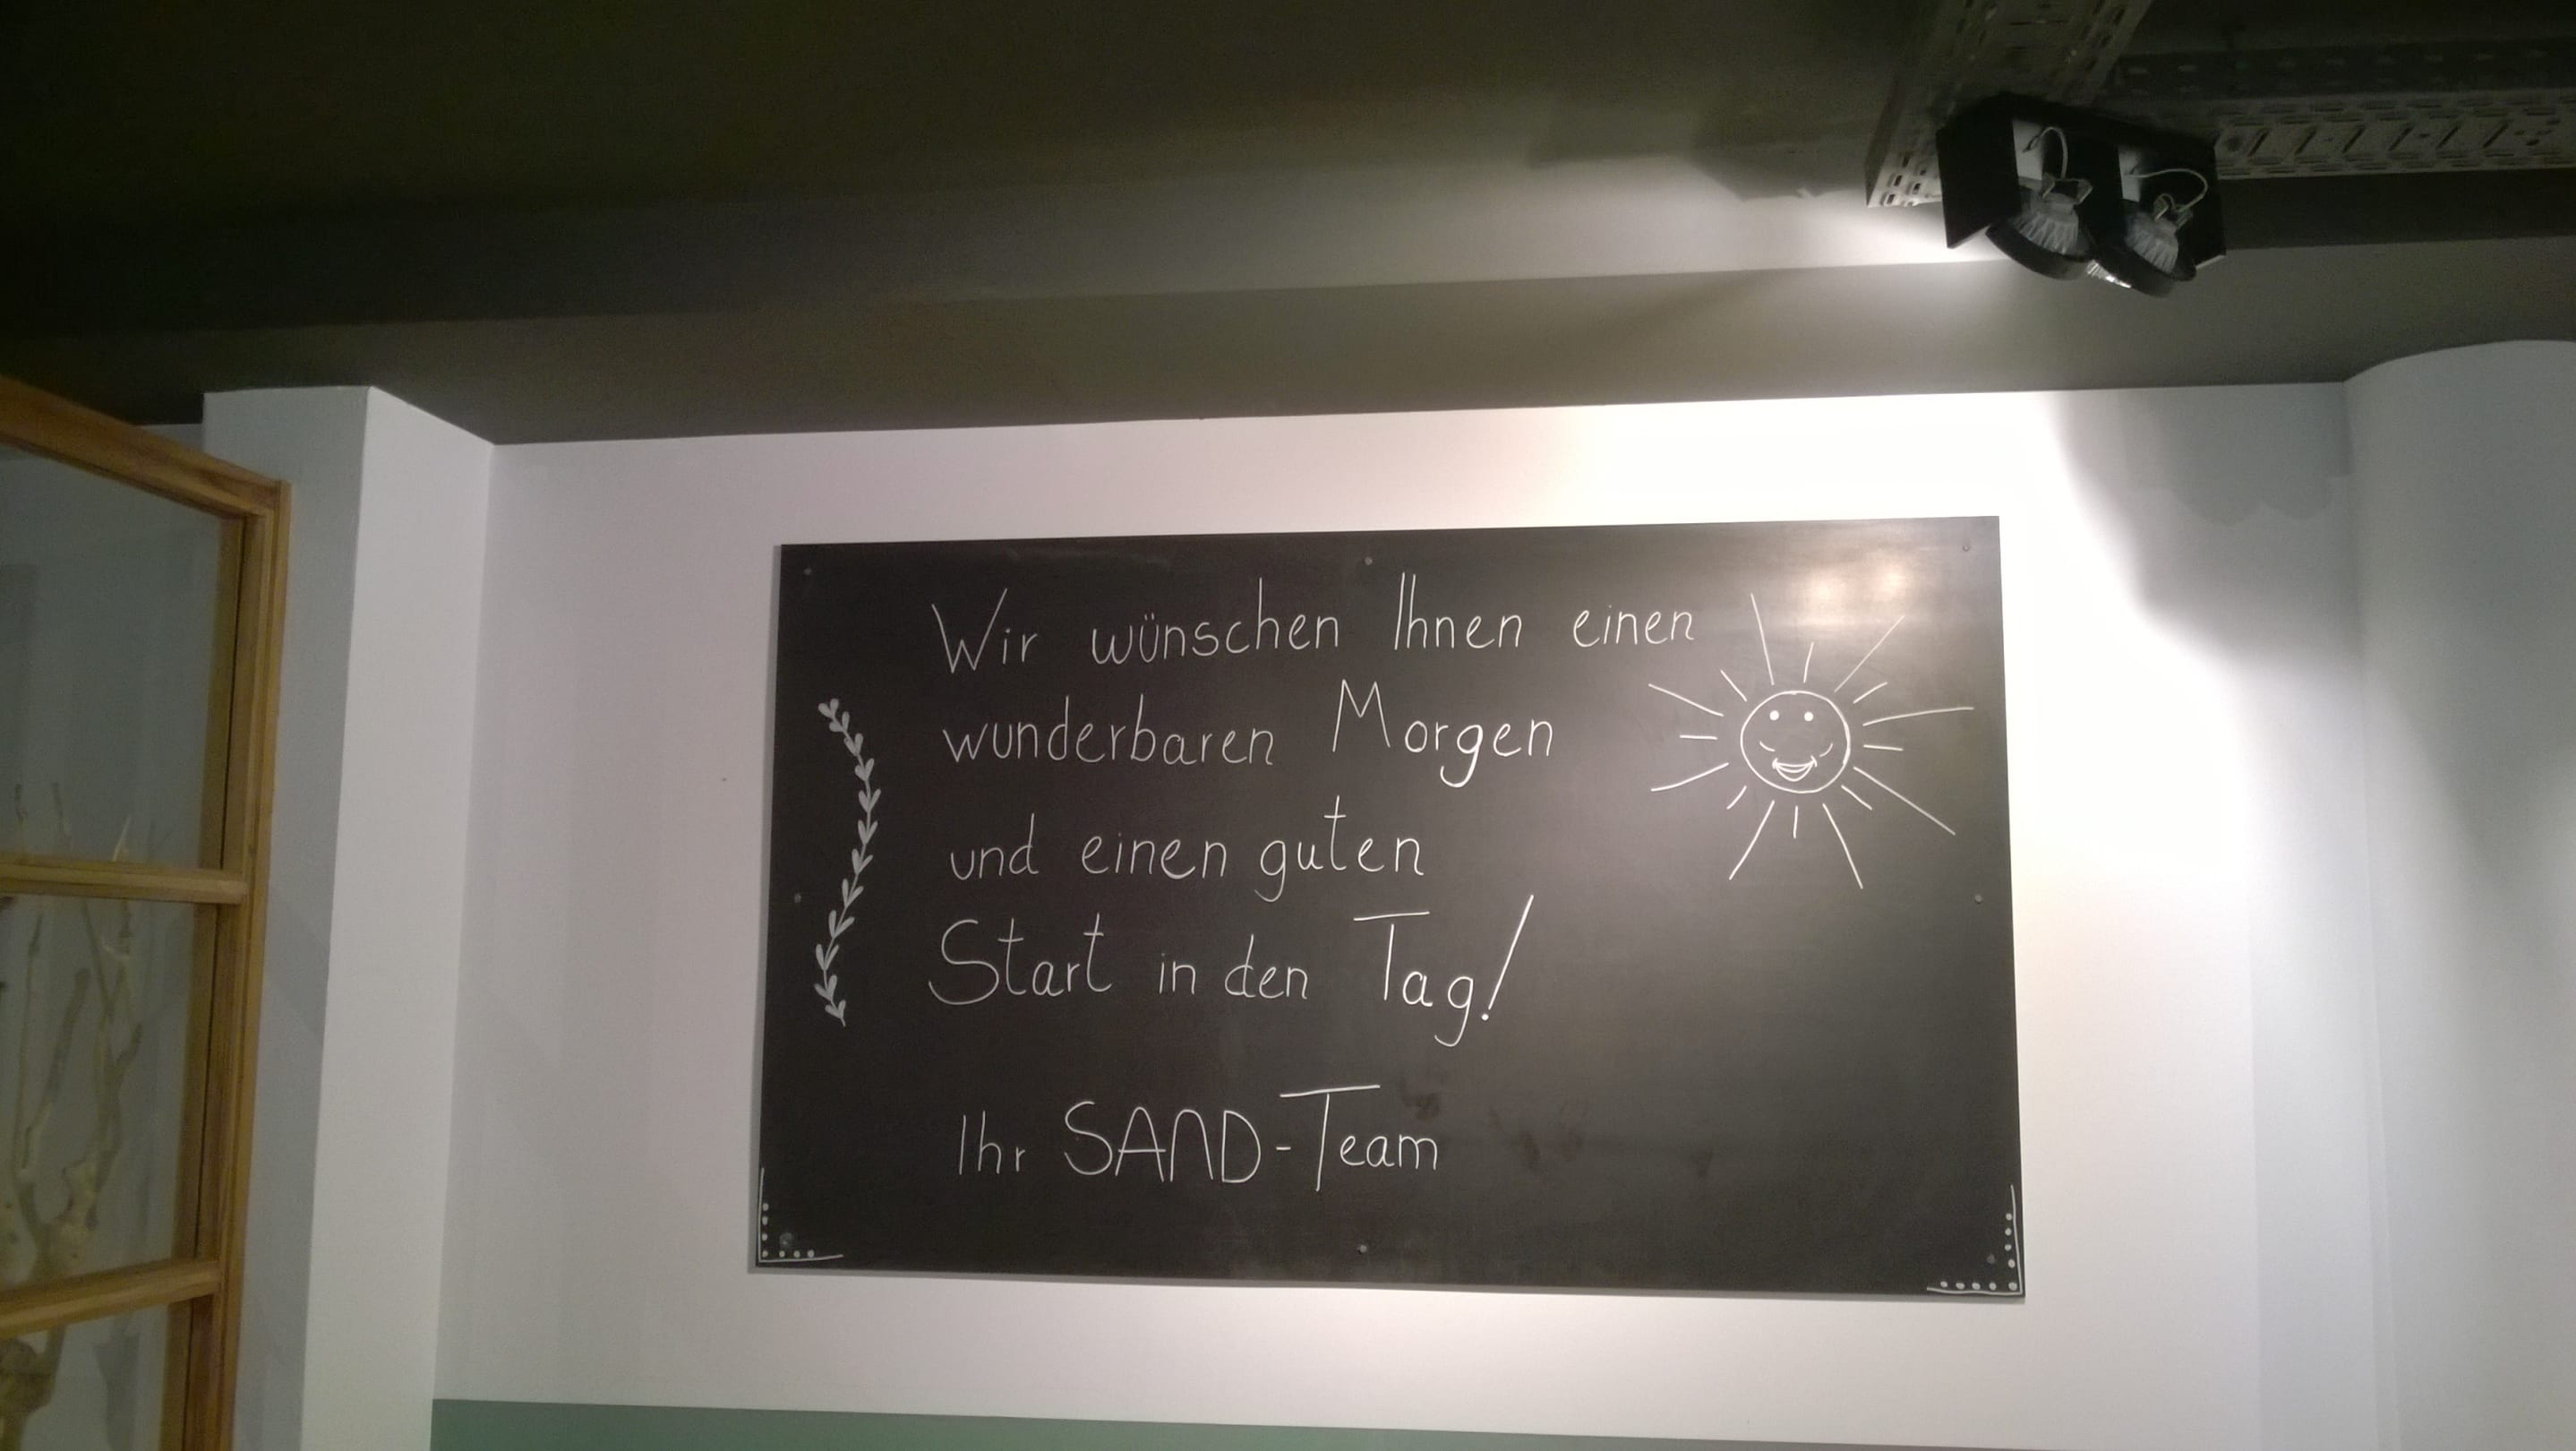 Wir wünschen Ihnen einen
wunderbaren Morgen
und einen guten
Start in den Tag!
Ihr SAND-Team